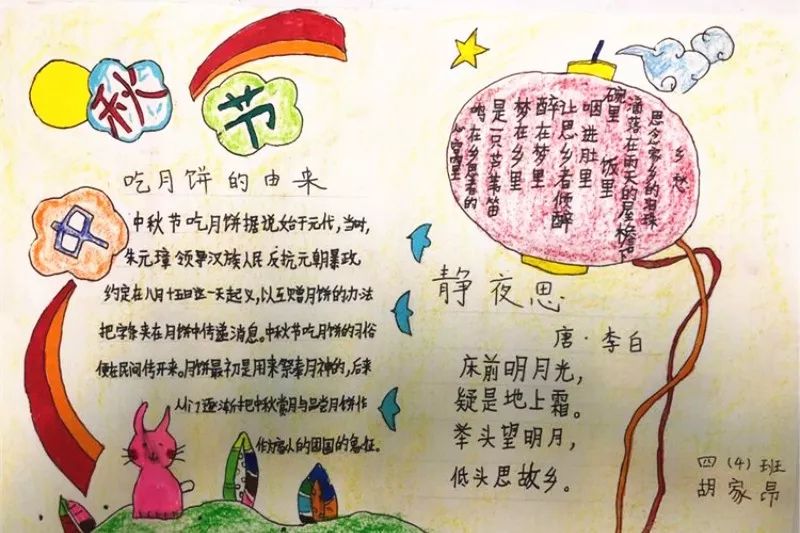 中
秋
节
吃月饼的由来
中秋节吃月饼据说始于元代,当时,
朱元璋领导汉族人民反抗元朝暴政
约定在八月十五日这一天起义,以互赠月饼的办法
把字条夹在月饼中传递消息。中秋节吃月饼的习俗
便在民间传开来。月饼最初是用来祭奉月神的,后来
人们逐渐把中秋赏月与品尝月饼作
作为家人的团圆的象征。
乡愁
思念家乡的
洒落在雨天的屋檐下
碗里 饭里
咽进肚里
让思乡者倾醉
醉在梦里
梦在乡里
是一只芦苇笛
鸣在乡思者的
心窝里
静夜思
唐·李白
床前明月光,
疑是地上霜。
举头望明月,
低头思故乡。
四(4)班
胡家昂